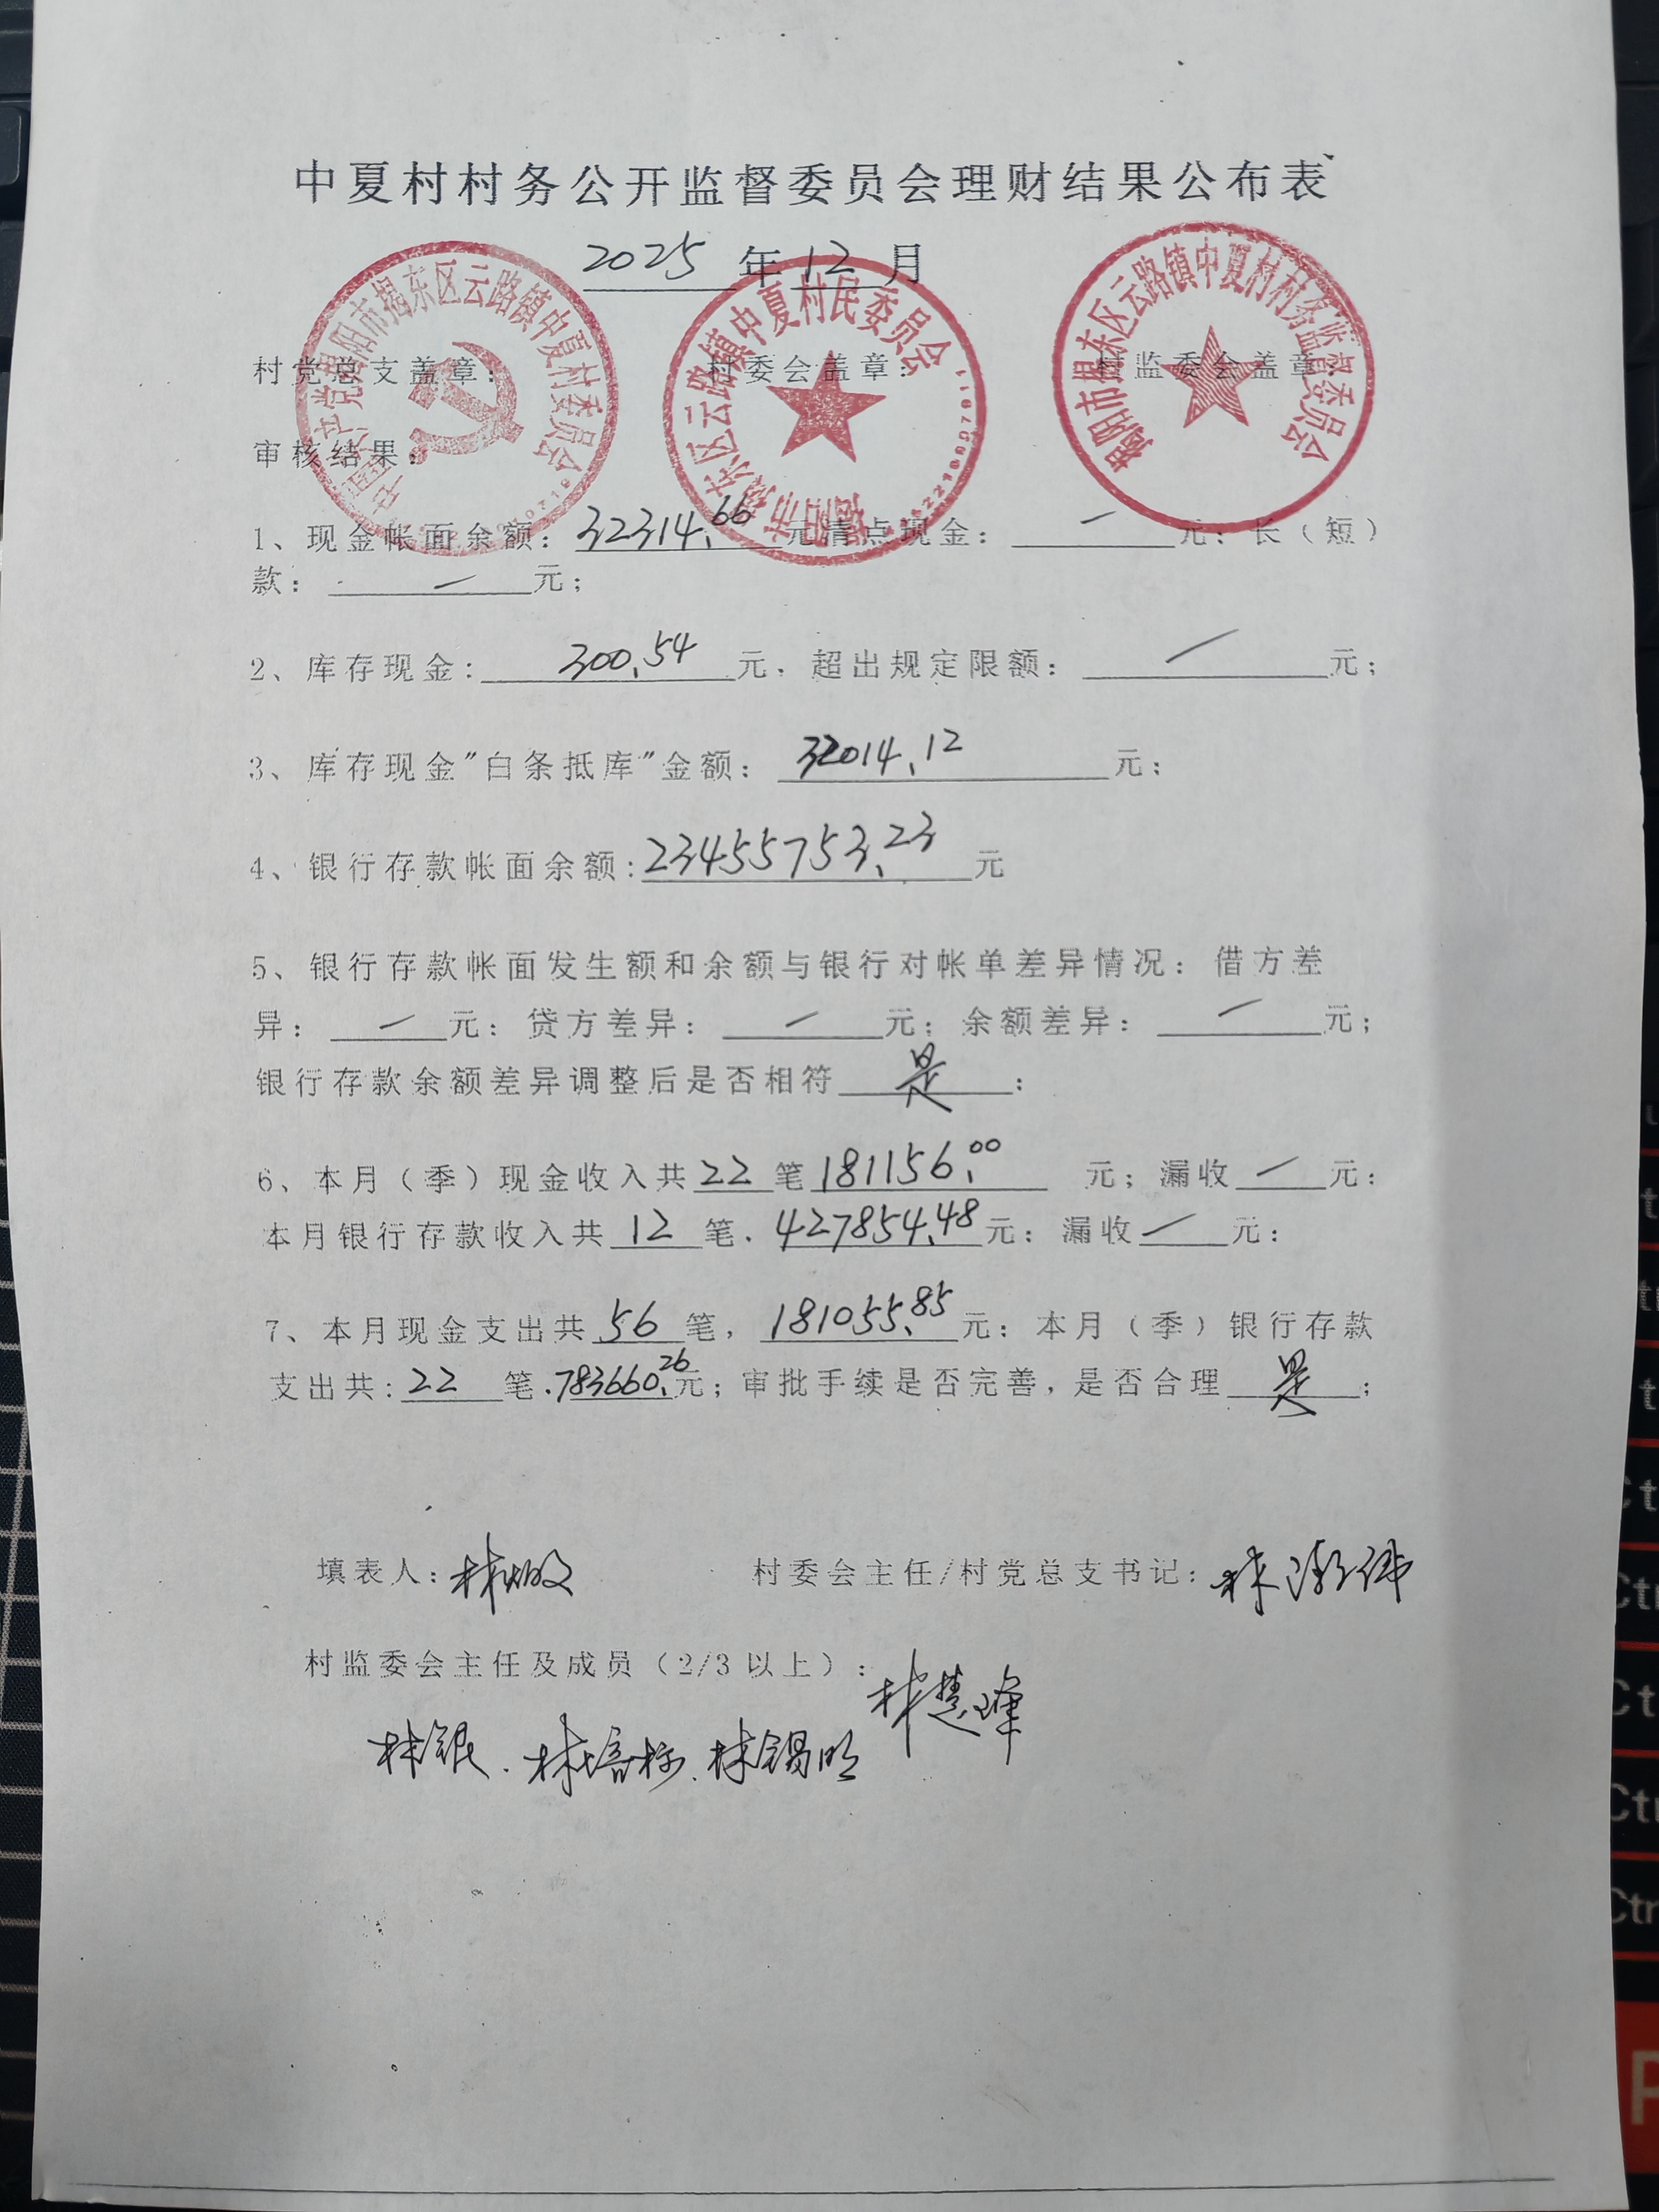 中夏村村务公开监督委员会理财结果公布表
2025 年 12 月
中国共产党揭阳市揭东区云路镇中夏村委员会
揭阳市揭东区云路镇中夏村民委员会
揭阳市揭东区云路镇中夏村村务监督委员会
村党总支盖章： 村委会盖章： 村监委会盖章：
审核结果：
1、现金帐面余额：32314.66元清点现金：一元；长（短）
款：一元；
2、库存现金：300.54元，超出规定限额：一元；
3、库存现金"白条抵库"金额：32014.12元；
4、银行存款帐面余额：23455753.23元
5、银行存款帐面发生额和余额与银行对帐单差异情况：借方差
异：一元：贷方差异：一元；余额差异：一元；
银行存款余额差异调整后是否相符是：
6、本月（季）现金收入共22笔181156.00元；漏收一元：
本月银行存款收入共12笔．427854.48元：漏收一元：
7、本月现金支出共56笔，181055.85元：本月（季）银行存款
支出共：22笔．783660.26元；审批手续是否完善，是否合理是；
填表人：林 村委会主任/村党总支书记：林潮伟
村监委会主任及成员（2/3以上）：林慧峰
林锟．林培标．林锡明
Ctrl